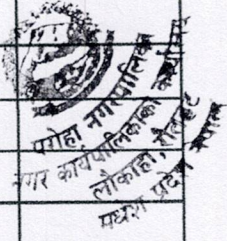 परोहा नगरपालिका
नगर कार्यपालिकाको कार्यालय
लौकाहा, रौतहट
मधेश प्रदेश, नेपाल